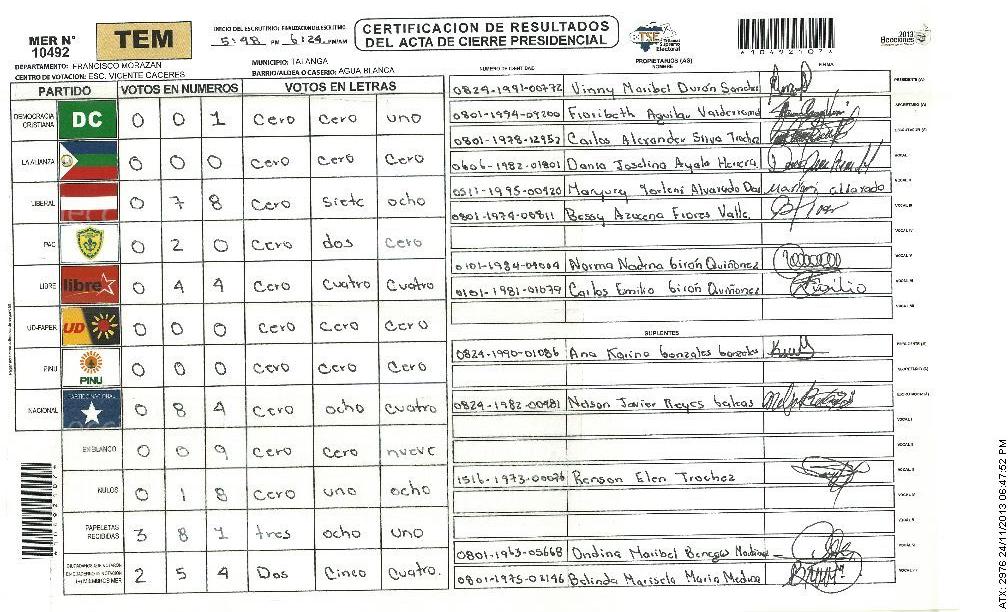 MER N° 10492
TEM
INICIO DEL ESCRUTINIO: FINALIZACION DEL ESCRUTINIO
5:48 PM 6:24 PM/AM
CERTIFICACION DE RESULTADOS
DEL ACTA DE CIERRE PRESIDENCIAL
TSE Tribunal Supremo Electoral
Elecciones 2013
DEPARTAMENTO: FRANCISCO MORAZAN
MUNICIPIO: TALANGA
CENTRO DE VOTACION: ESC. VICENTE CACERES
BARRIO/ALDEA O CASERIO: AGUA BLANCA
PARTIDO VOTOS EN NUMEROS VOTOS EN LETRAS
DEMOCRACIA CRISTIANA DC 0 0 1 Cero Cero uno
LA ALIANZA 0 0 0 Cero Cero Cero
LIBERAL 0 7 8 Cero siete ocho
PAC 0 2 0 Cero dos cero
LIBRE libre 0 4 4 Cero Cuatro Cuatro
UD-FAPER UD 0 0 0 Cero Cero Cero
PINU PINU 0 0 0 Cero Cero Cero
NACIONAL PARTIDO NACIONAL 0 8 4 Cero ocho cuatro
EN BLANCO 0 0 9 Cero Cero nueve
NULOS 0 1 8 Cero uno ocho
PAPELETAS RECIBIDAS 3 8 1 tres ocho uno
2 5 4 Dos Cinco Cuatro.
NUMERO DE IDENTIDAD PROPIETARIOS (AS) NOMBRE FIRMA
0824-1991-00772 Vinny Maribel Durón Sanchez PRESIDENTE (A)
0801-1994-09200 Fioribeth Aguilar Valderrama SECRETARIO (A)
0801-1978-12957 Carlos Alexander Silva Trochez ESCRUTADOR (A)
0606-1982-01801 Dania Joselina Ayala Herrera VOCAL I
0511-1995-00420 Maryury Yorleni Alvarado VOCAL II
0801-1974-00811 Bessy Azucena Flores Valle. VOCAL III
VOCAL IV
0101-1984-04004 Norma Nadina Girón Quiñonez VOCAL V
0101-1981-01079 Carlos Emilio Girón Quiñonez VOCAL VI
VOCAL VII
SUPLENTES
0824-1990-01086 Ana Karina Gonzales Gonzales PRESIDENTE (A)
SECRETARIO (A)
0824-1982-00481 Nelson Javier Reyes ESCRUTADOR (A)
VOCAL I
VOCAL II
1516-1973-00076 Renson Elen Trochez VOCAL III
VOCAL IV
VOCAL V
0801-1963-05668 Ondina Maribel VOCAL VI
0801-1975-02146 Belinda Marisela Maria Medina VOCAL VII
ATX: 2976 24/11/2013 06:47:52 PM